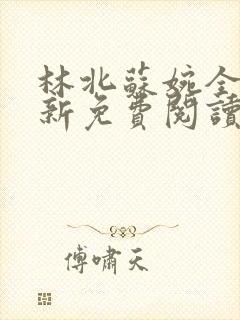 林北蘇婉全
新免費閱讀
傅嘯天